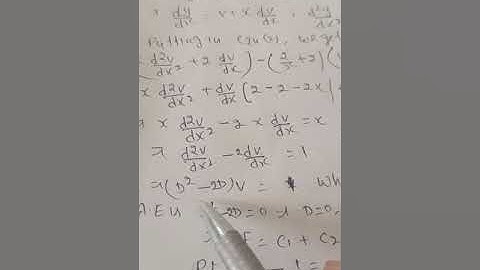 dy/dx = v + x dv/dx , d²y/dx²
Putting in equ(1), we get
d²v/dx² + 2 dv/dx) - (2/x + 2)(
x d²v/dx² + dv/dx (2 - 2 - 2x)
x d²v/dx² - 2 x dv/dx = x
⇒ d²v/dx² - 2 dv/dx = 1
⇒ (D² - 2D) V = 1 Wh
A.E is - 2D = 0 ⇒ D = 0,
F = C1 + C2
P.I 1 =